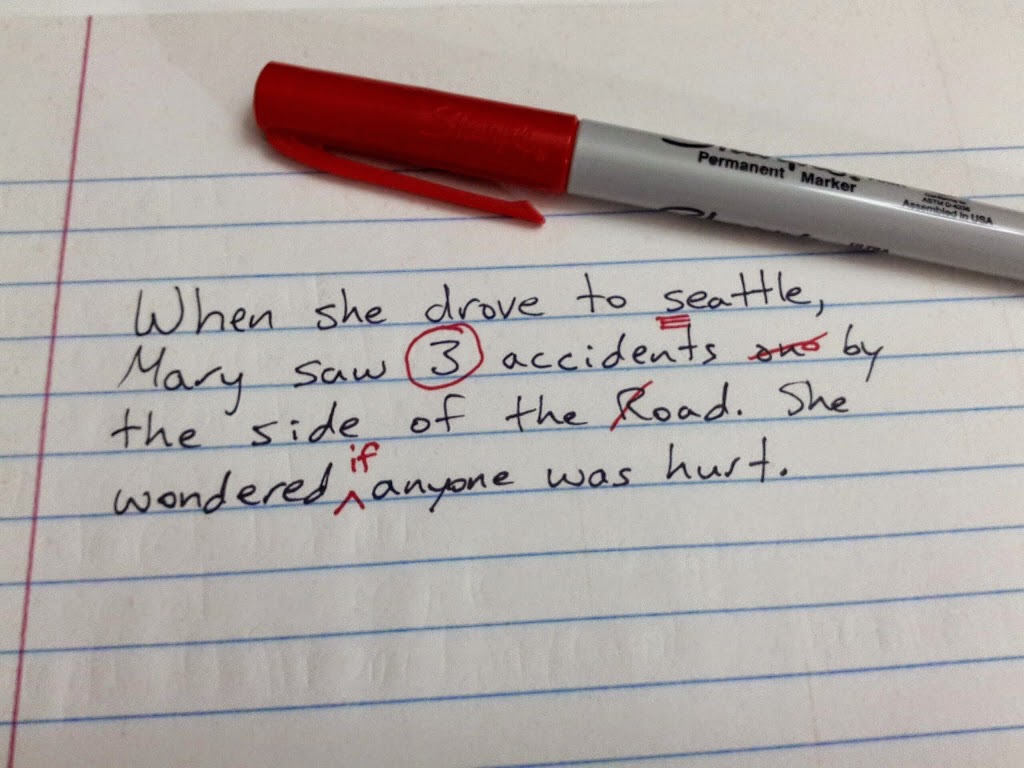 Permanent Marker
Assembled in USA
When she drove to seattle,
Mary saw 3 accidents by
the side of the Road. She
if
wondered ^ anyone was hurt.